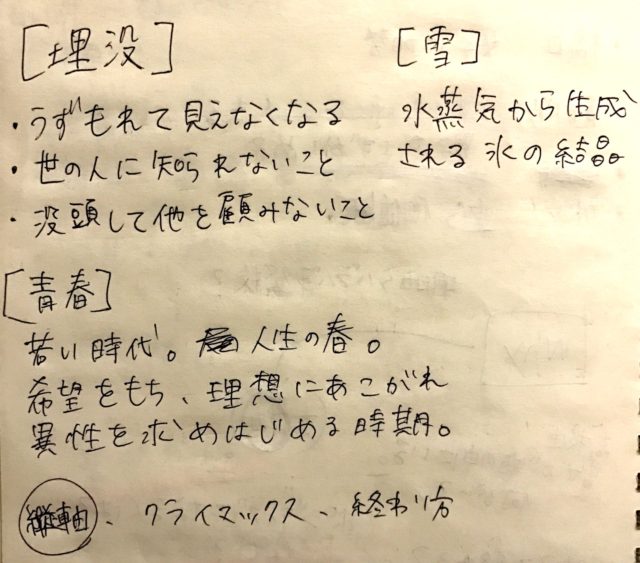 [埋没]
・うずもれて見えなくなる
・世の人に知られないこと
・没頭して他を顧みないこと
[雪]
水蒸気から生成
される氷の結晶
[青春]
若い時代。人生の春。
希望をもち、理想にあこがれ
異性を求めはじめる時期。
縦軸、クライマックス、終わり方